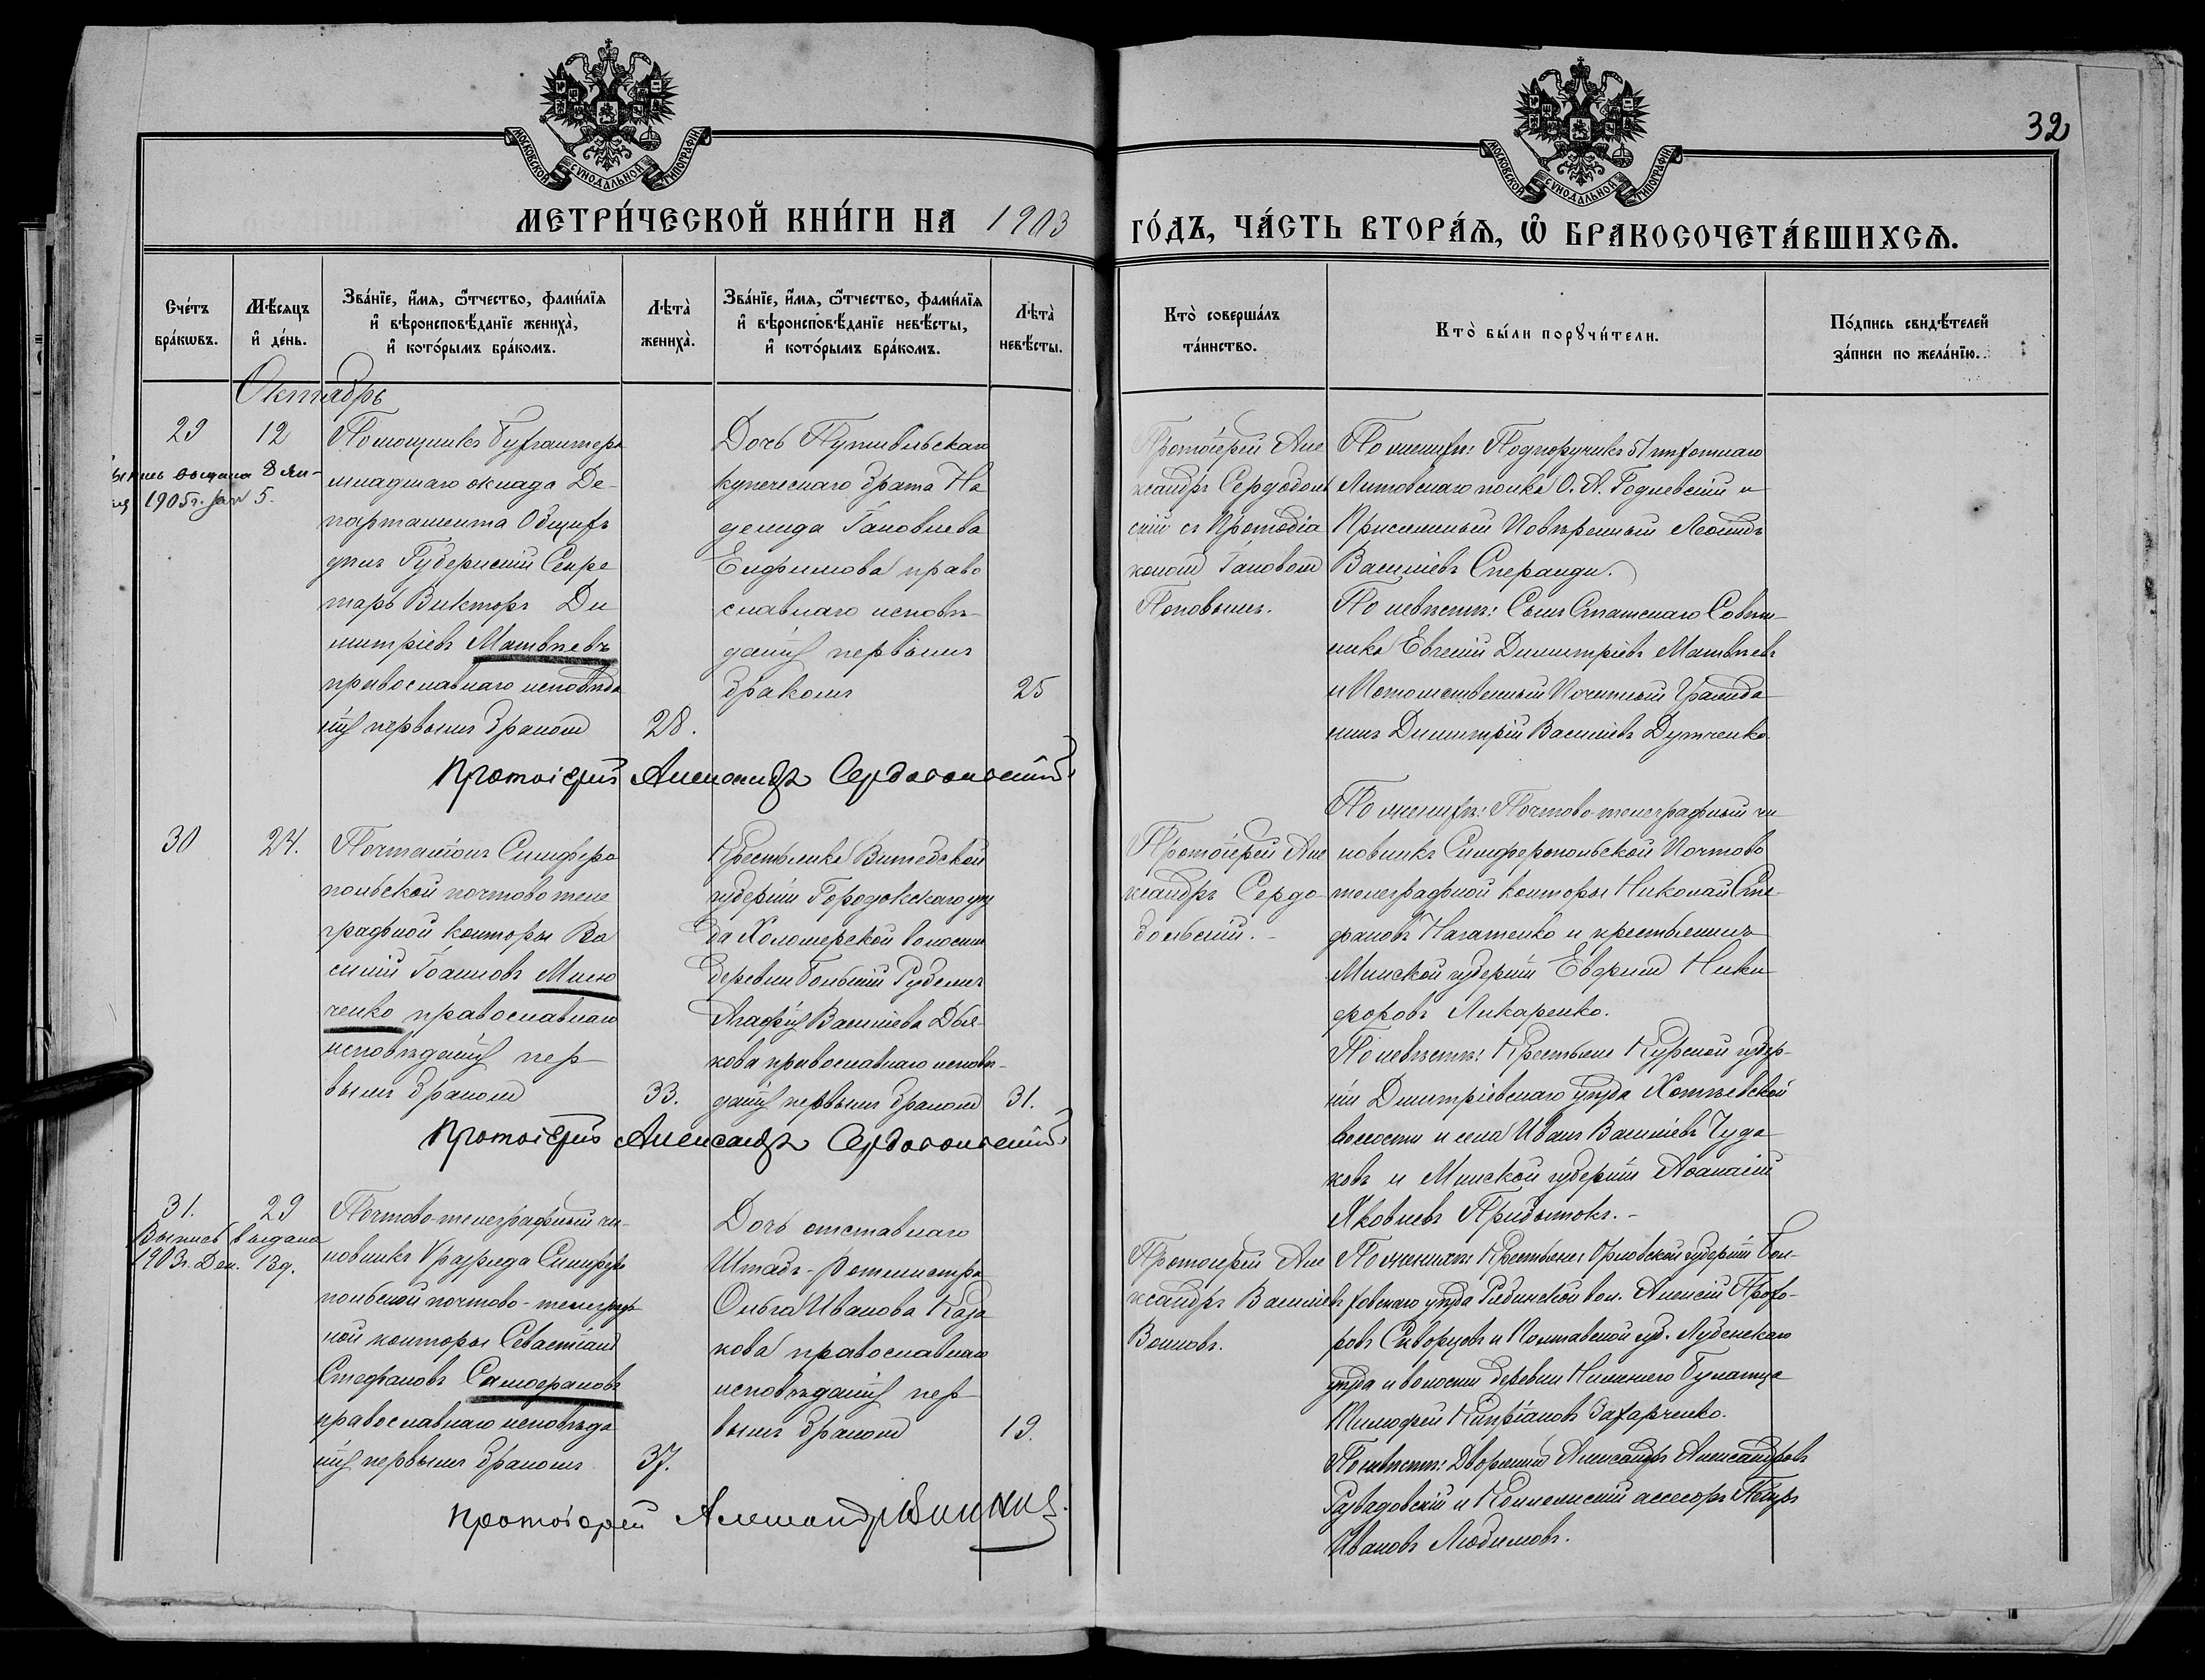 32
МОСКОВСКОЙ СѴНОДАЛЬНОЙ ТИПОГРАФІИ
МОСКОВСКОЙ СѴНОДАЛЬНОЙ ТИПОГРАФІИ
МЕТРИ́ЧЕСКОЙ КНИ́ГИ НА 1903
ГО́ДЪ, ЧА́СТЬ ВТОРА́Ѧ, Ѡ҆ БРАКОСОЧЕТА́ВШИХСѦ.
Сче́тъ
бра́кѡвъ.
Мѣ́сяцъ
и҆ де́нь.
Зва́нїе, и҆́мѧ, ѻ҆́тчество, фами́лїѧ
и҆ вѣроисповѣ́данїе жениха̀,
и҆ кото́рымъ бра́комъ.
Лѣта̀
жениха̀.
Зва́нїе, и҆́мѧ, ѻ҆́тчество, фами́лїѧ
и҆ вѣроисповѣ́данїе невѣ́сты,
и҆ кото́рымъ бра́комъ.
Лѣта̀
невѣ́сты.
Кто̀ соверша́лъ
та́инство.
Кто̀ бы́ли порꙋчи́тели.
По́дпись свидѣ́телей
за́писи по жела́нїю.
Октябрь
29
12
выдана 8 Ян-
1905г. за № 5.
Помощникъ бухгалтера
младшаго оклада Де-
партамента Общихъ
дѣлъ Губернскій Секре
тарь Викторъ Ди
митріевъ Матвѣевъ
православнаго исповѣда
нія первымъ бракомъ
28.
Дочь Путивльскаго
купеческаго брата На
дежда Іаковлева
Ефимова право
славнаго исповѣ-
данія первымъ
бракомъ
25
Протоіерей Але
ксандръ Сердоболь
скій съ Протодіа
кономъ Іаковомъ
Поповымъ.
По женихѣ: Подпоручикъ 51 пѣхотнаго
Литовскаго полка О. А. Годлевскій и
Присяжный Повѣренный Леонидъ
Василіевъ Сперанди.
По невѣстѣ: Сынъ Статскаго Совѣт-
ника Евгеній Димитріевъ Матвѣевъ
и Потомственный Почетный Гражда
нинъ Димитрій Василіевъ Дутченко.
Протоіерей Александръ Сердобольскій
30
24.
Почталіонъ Симферо
польской почтово теле
графной конторы Ва
силій Іоанновъ Милю
ченко православнаго
исповѣданія пер
вымъ бракомъ
33.
Крестьянка Витебской
губерніи Городокскаго уѣз
да Холомерской волости
деревни
Агафія Василіева Дья-
кова православнаго исповѣ-
данія первымъ бракомъ
31.
Протоіерей Але
ксандръ Сердо
больскій.-
По женихѣ: Почтово-телеграфный чи-
новникъ Симферопольской Почтово
телеграфной конторы Николай Сте-
фановъ Нагатенко и крестьянинъ
Минской губерніи Ефремъ Ники
форовъ Макаренко.
По невѣстѣ: Крестьяне Курской губер-
ніи Димитріевскаго уѣзда Хотѣевской
волости и села Иванъ Василіевъ Чуда
ковъ и Минской губерніи Аѳанасій
Яковлевъ Прибытокъ.-
Протоіерей Александръ Сердобольскій
31.
29
Выпись выдана
1903г. Дек. 13д.
Почтово-телеграфный чи-
новникъ V разряда Симферо
польской почтово-телеграф
ной конторы Севастіанъ
Стефановъ
православнаго исповѣда
нія первымъ бракомъ
37.
Дочь отставнаго
Штабъ-ротмистра
Ольга Иванова Каза
кова православнаго
исповѣданія пер
вымъ бракомъ
19.
Протоіерей Але
ксандръ Василіевъ
Волковъ.
По женихѣ: Крестьяне: Орловской губерніи Бол-
ховскаго уѣзда вол. Алексій Прохо-
ровъ Скворцовъ и Полтавской губ. Лубенскаго
уѣзда и волости деревни Нижняго Булатца
Тимофей Кипріановъ Захарченко.
По невѣстѣ: Дворянинъ Александръ Александровъ
Развадовскій и Коллежскій ассесоръ Петръ
Ивановъ Любимовъ.
Протоіерей Александръ Волковъ